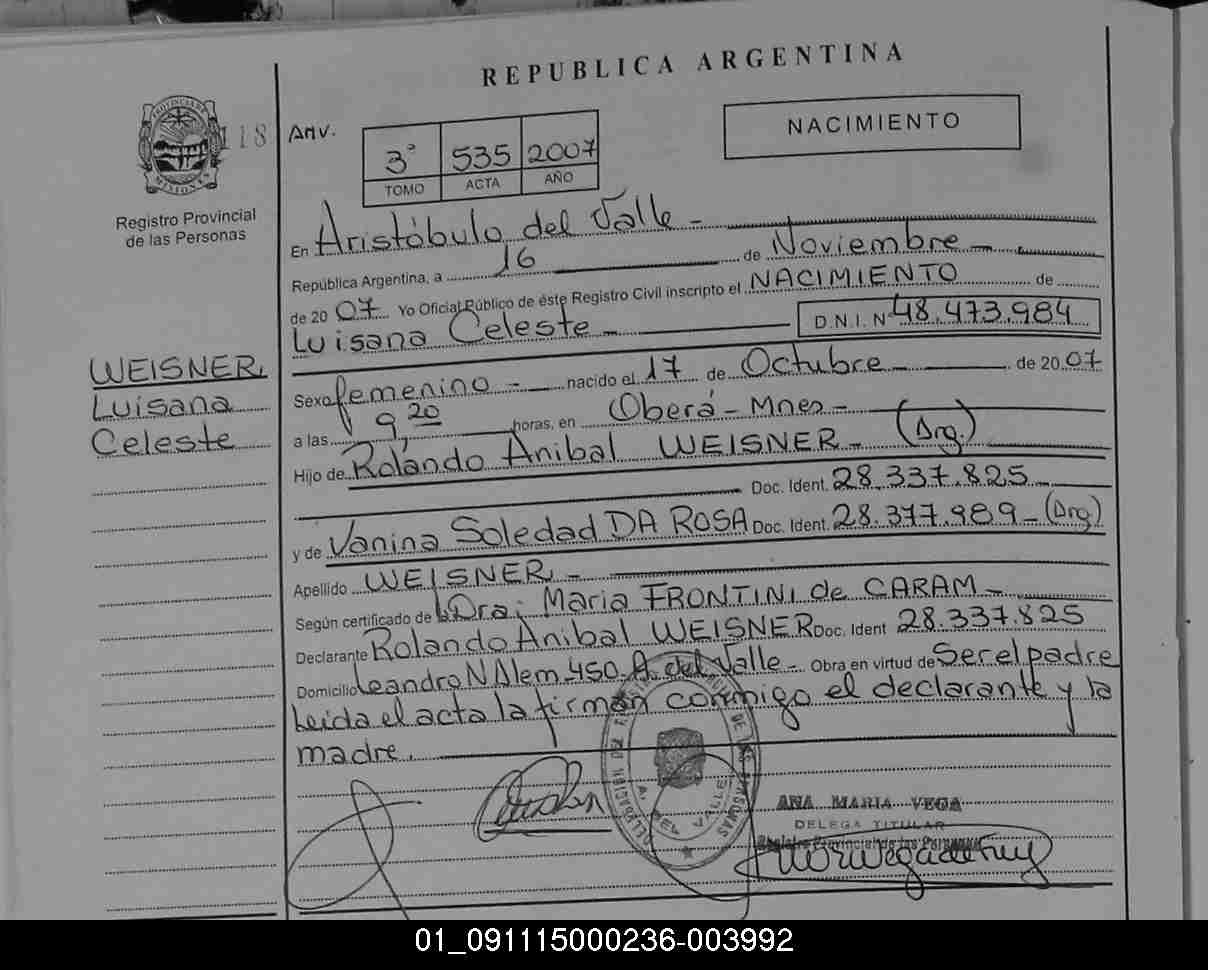 REPUBLICA ARGENTINA
PROVINCIA DE
MISIONES
118
Registro Provincial
de las Personas
Anv.
3° 535 2007
TOMO ACTA AÑO
NACIMIENTO
En Aristóbulo del Valle -
República Argentina, a 16 de Noviembre -
de 2007 Yo Oficial Público de éste Registro Civil inscripto el NACIMIENTO de
Luisana Celeste - D.N.I. Nº 48.473.984
WEISNER,
Luisana
Celeste
Sexo femenino - nacido el 17 de Octubre - de 2007
a las 9,20 horas, en Oberá - Mnes -
Hijo de Rolando Anibal WEISNER - (Arg.)
Doc. Ident. 28.337.825
y de Vanina Soledad DA ROSA Doc. Ident. 28.377.989 - (Arg)
Apellido WEISNER -
Según certificado de Dra: Maria FRONTINI de CARAM -
Declarante Rolando Anibal WEISNER Doc. Ident 28.337.825
Domicilio Leandro N Alem 450 A. del Valle - Obra en virtud de Ser el padre
Leida el acta la firman conmigo el declarante y la
madre.
A. DEL VALLE
ANA MARIA VEGA
DELEGA TITULAR
Registro Provincial de las Personas
01_091115000236-003992